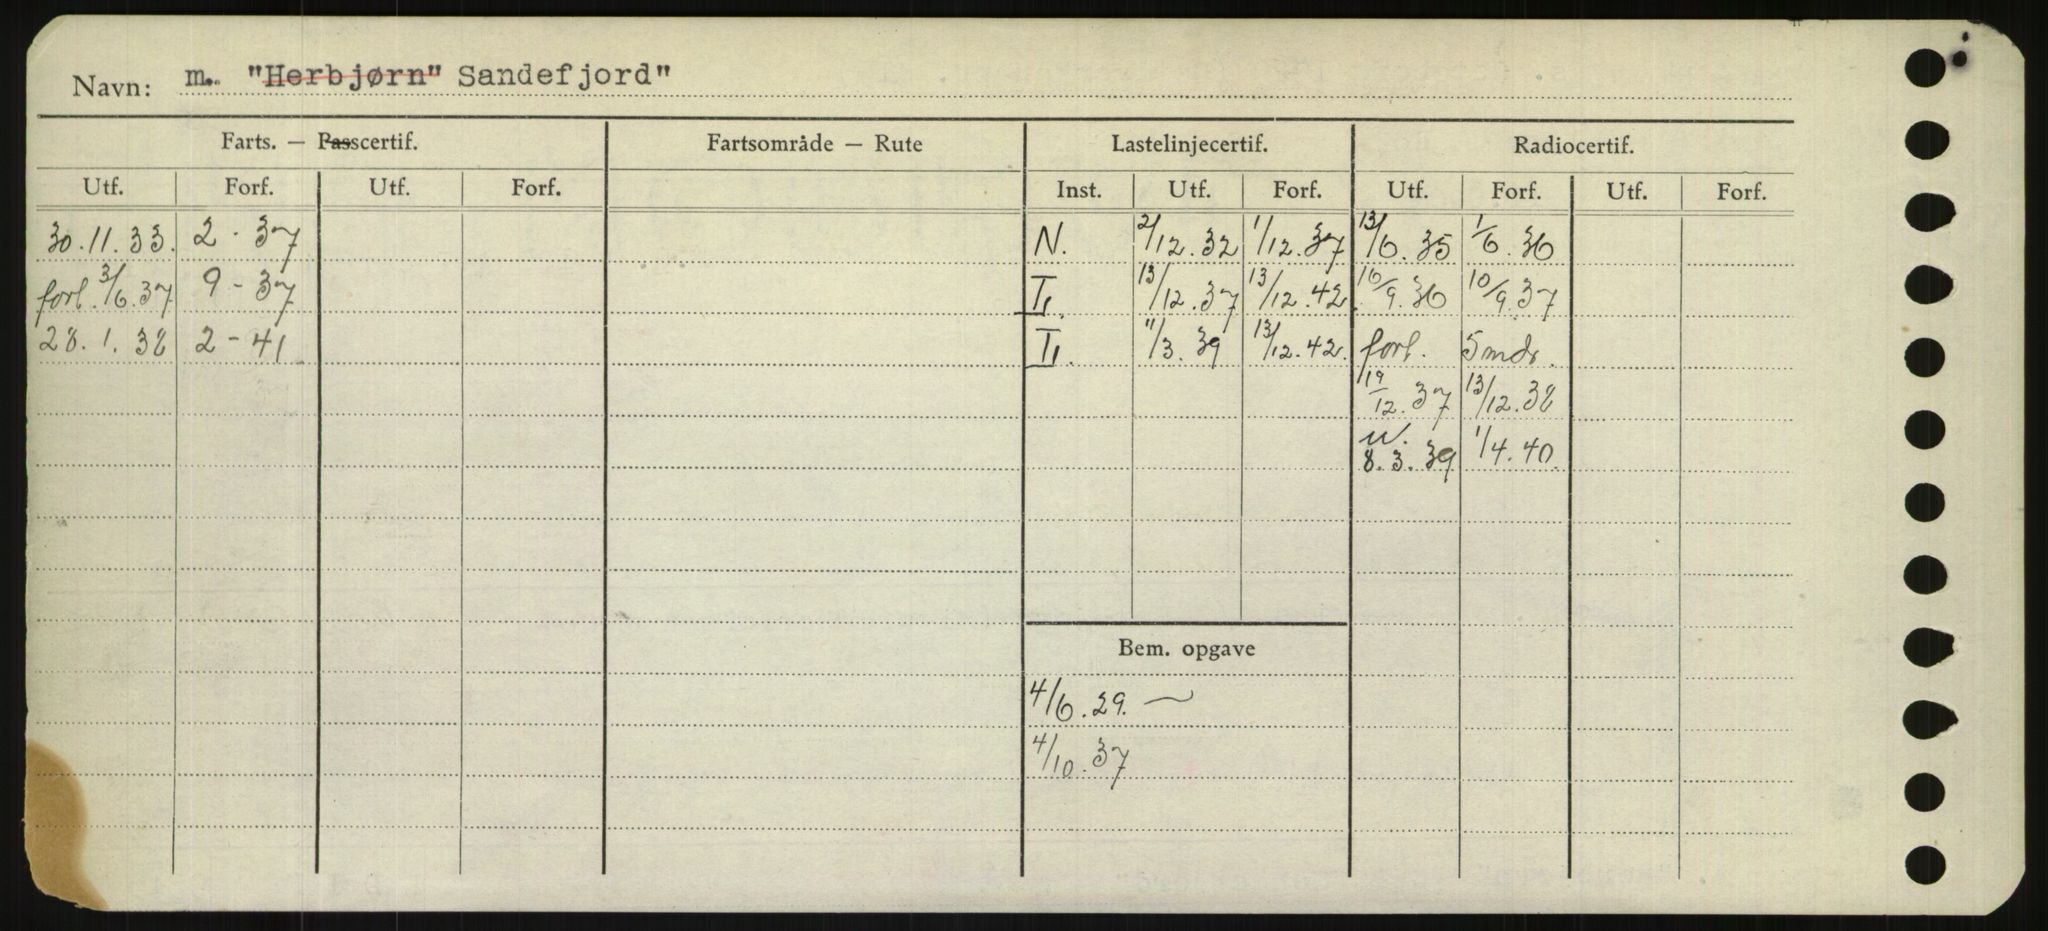 Navn: m. "Herbjørn" Sandefjord"
Farts. — Passcertif. Fartsområde — Rute Lastelinjecertif. Radiocertif.
Utf. Forf. Utf. Forf. Inst. Utf. Forf. Utf. Forf. Utf. Forf.
30.11.33. 2-37 N. 2/12.32 1/12.37 13/6.35 1/6.36
forl. 3/6.37 9-37 13/12.37 13/12.42 10/9.36 10/9.37
28.1.38 2-41 11/3.39 13/12.42. forl. 5 mdr.
19/12.37 13/12.38
8.3.39 1/4.40
Bem. opgave
4/6.29. —
4/10.37